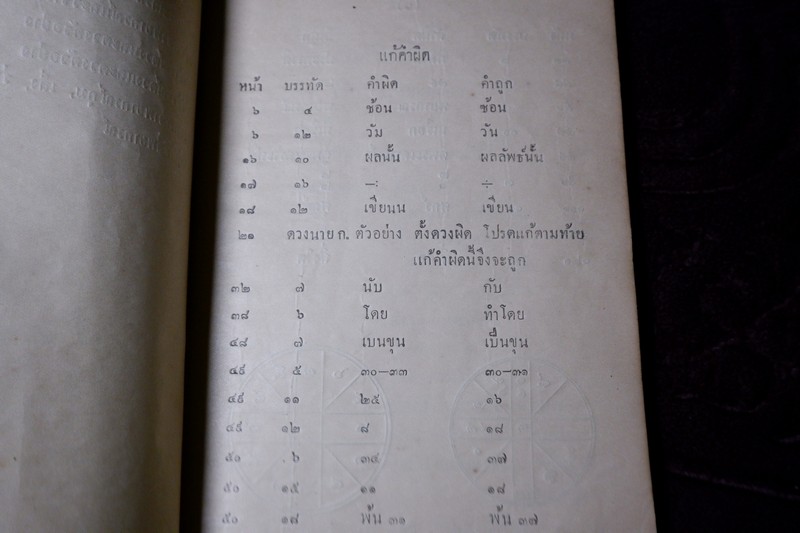 แก้คำผิด
หน้า บรรทัด คำผิด คำถูก
๖ ๔ ช้อน ซ้อน
๖ ๑๒ วัม วัน
๑๖ ๑๐ ผลนั้น ผลลัพธ์นั้น
๑๗ ๑๖ –: ÷
๑๘ ๑๒ เขียนน เขียน
๒๑ ดวงนาย ก. ตัวอย่าง ตั้งดวงผิด โปรดแก้ตามท้าย
แก้คำผิดนี้จึงจะถูก
๓๒ ๗ นับ กับ
๓๘ ๖ โดย ทำโดย
๔๘ ๗ เบนขุน เป็นขุน
๔๙ ๕ ๓๐–๙๓ ๓๐–๓๑
๔๙ ๑๑ ๒๕ ๑๖
๔๙ ๑๒ ๘ ๑๘
๕๐ ๖ ๓๔ ๓๗
๕๐ ๑๕ ๑๑ ๑๘
๕๐ ๑๘ พ้น ๓๑ พ้น ๓๗